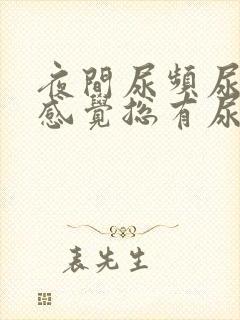 夜間尿頻尿
感覺總有尿
表先生